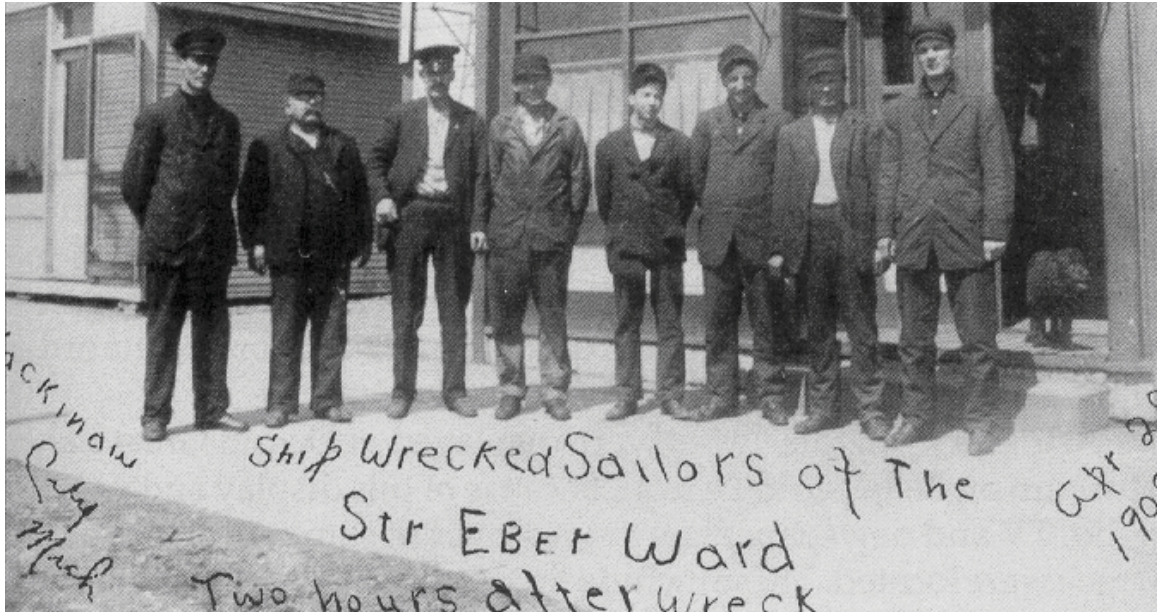 Mackinaw
City
Mich
Ship Wrecked Sailors of The
Str EBEr Ward
Two hours after wreck
Apr 20
190